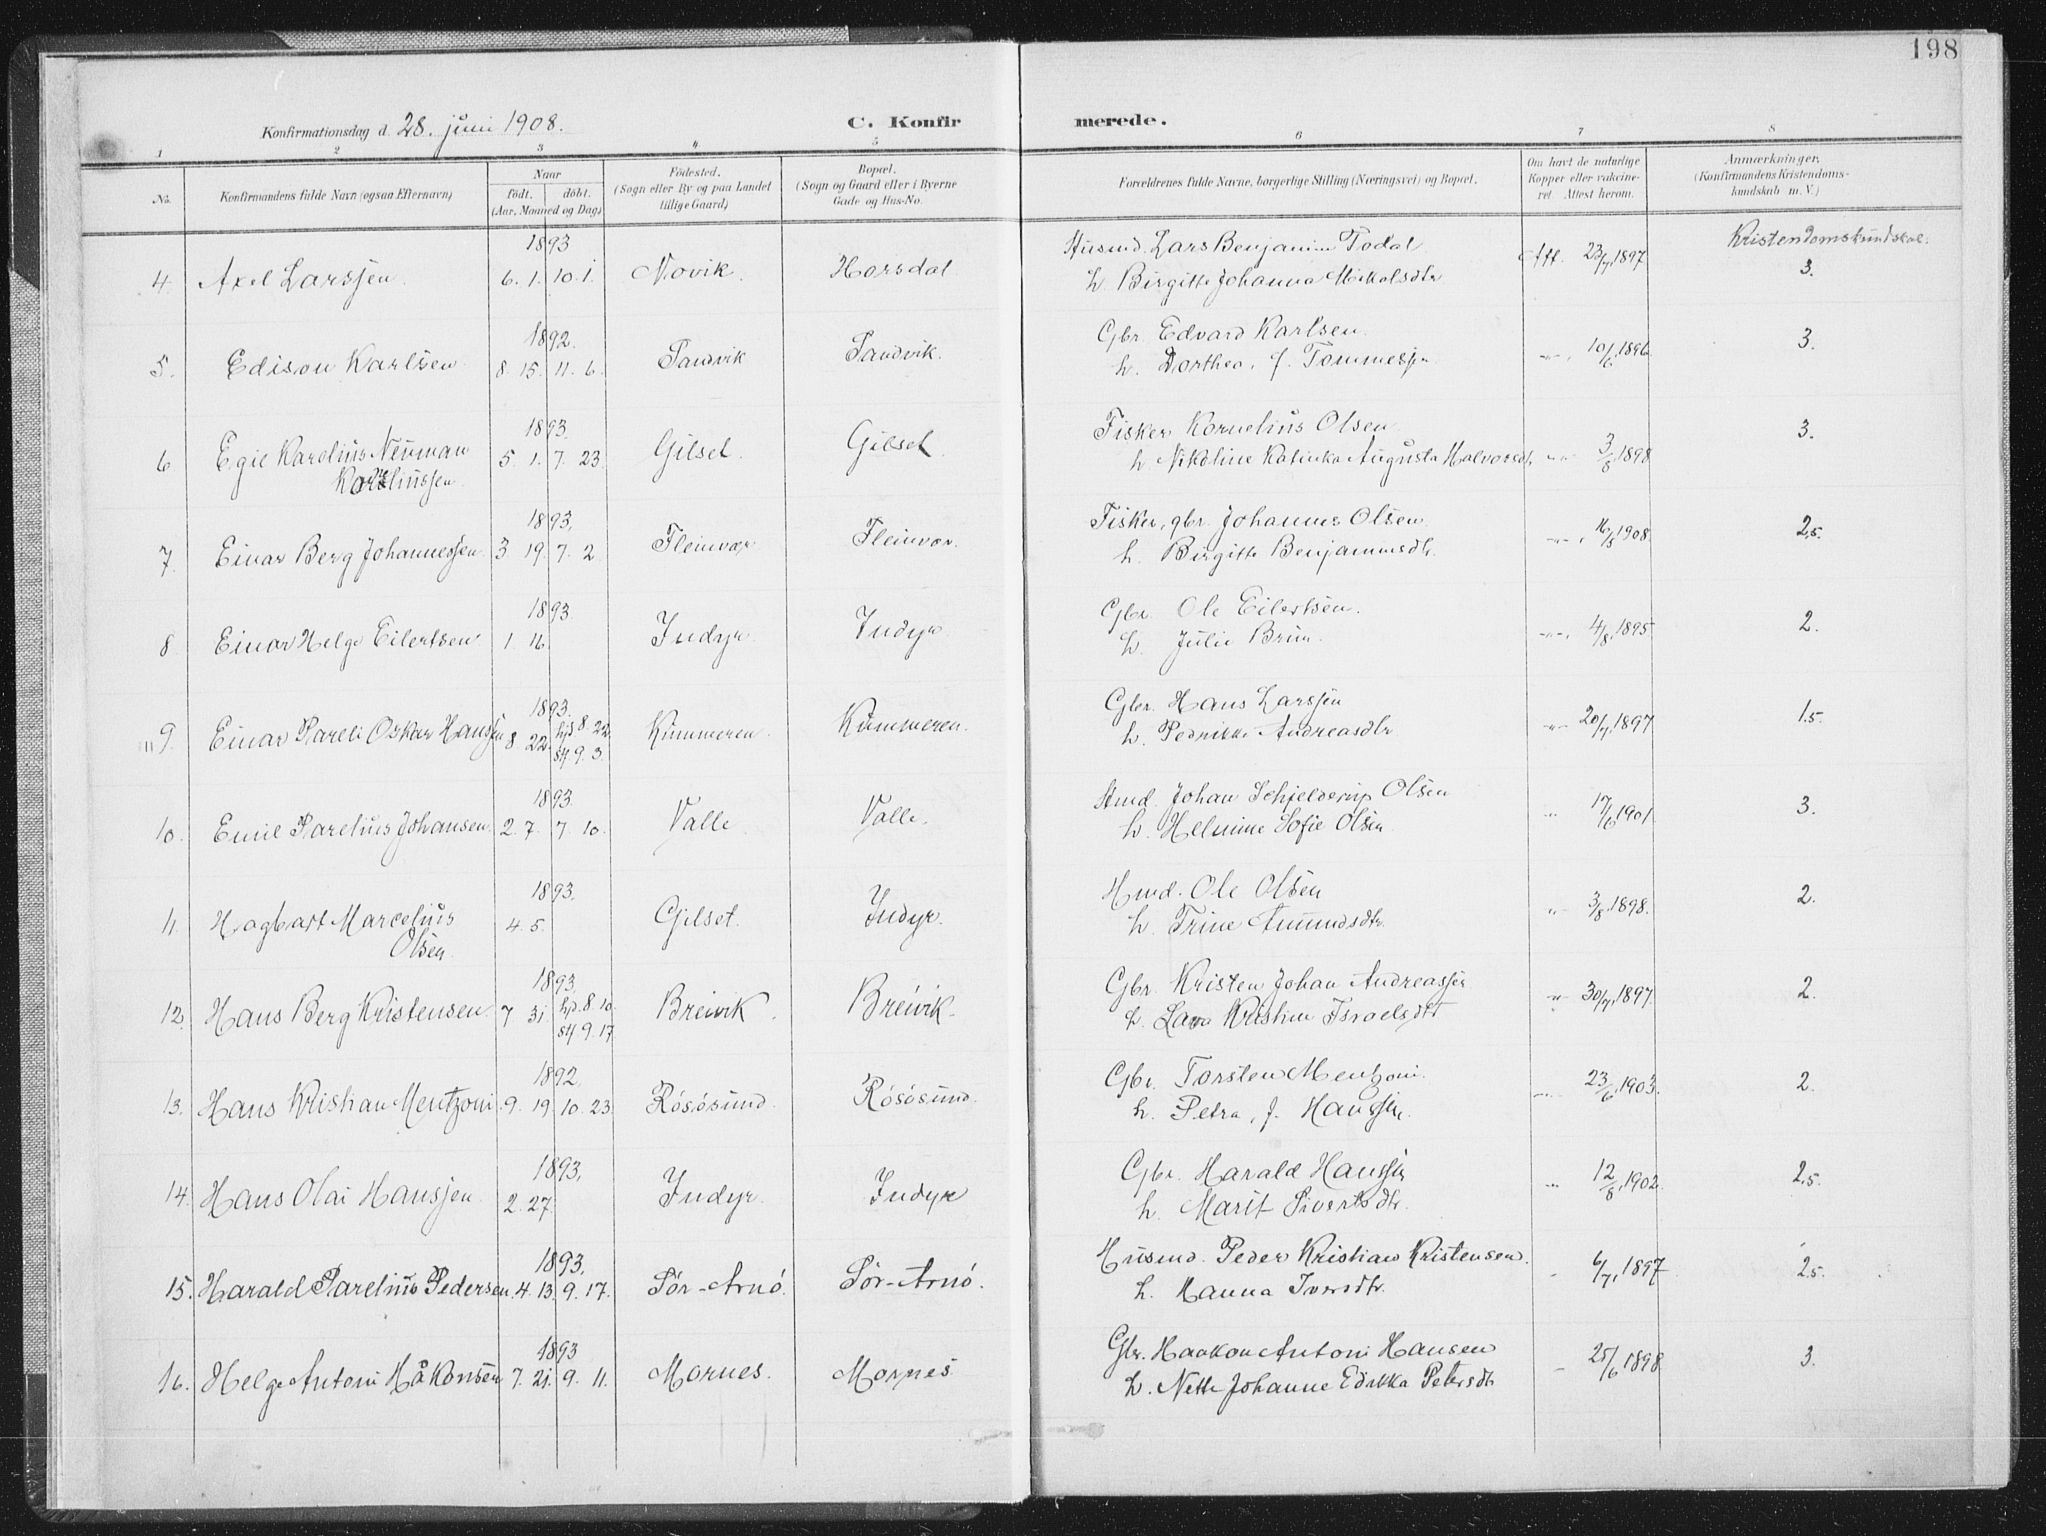 198
Konfirmationsdag d. 28. juni 1908. C. Konfirmerede.
1 2 3 4 5 6 7 8
No. Konfirmandens fulde Navn (ogsaa Efternavn) Naar født. døbt. (Aar, Maaned og Dag) Fødested. (Sogn eller By og paa Landet tillige Gaard) Bopæl. (Sogn og Gaard eller i Byerne Gade og Hus-No. Forældrenes fulde Navne, borgerlige Stilling (Næringsvei) og Bopæl. Om havt de naturlige Kopper eller vakcineret. Attest herom. Anmærkninger. (Konfirmandens Kristendomskundskab m. V.)
1893 Husmd. Lars Benjamin Todal Kristendomskundskab.
4. Axel Larssen 6. 1. 10. 1. Novik. Horsdal h. Birgitte Johanna Mikalsdtr. Att. 23/7 1897 3.
1892. Gbr. Edvard Karlsen.
5. Edison Karlsen 8. 15. 11. 6. Sandvik Sandvik. h. Dorthea, f. Tommessen „ 10/6 1896 3.
1893. Fisker Kornelius Olsen
6. Egil Karelius Neuman 5. 1. 7. 23. Gilset. Gilset. h. Nikoline Katinka Augusta Halvorsdtr. „ 3/8 1898 3.
Korneliussen
1893. Fisker, gbr. Johannes Olsen.
7. Einar Berg Johannessen 3 19. 7. 2. Fleinvær Fleinvær. h. Birgitte Benjaminsdtr. „ 16/5 1908. 2,5.
1893 Gbr. Ole Eilertsen.
8. Einar Helge Eilertsen 1. 16. Indyr Indyr h. Julie Brun. „ 4/8 1895 2.
1893. Gbr. Hans Larssen
9. Einar Pareli Oskar Hanssen 8. 22. hjd 8. 22. st 9. 3. Kummeren. Kummeren. h. Pedrikke Andreasdtr „ 20/7 1897 1.5.
1893. Hmd. Johan Schjelderup Olsen
10. Emil Parelius Johansen. 2. 7. 7. 10. Valle Valle. h. Helmine Sofie Olsen „ 17/6 1901 3.
1893. Hmd. Ole Olsen
11. Hagbart Marcelius 4. 5. Gjilset. Indyr. h. Trine Amundsdtr. „ 3/8 1898. 2.
Olsen
1893. Gbr. Kristen Johan Andreassen
12 Hans Berg Kristensen 7 31. hjd. 8. 10. st 9. 17. Breivik. Breivik. h. Lava Kristine Israelsdtr „ 30/7 1897. 2.
1892. Gbr. Torsten Mentzoni.
13. Hans Kristian Mentzoni. 9. 19. 10. 23. Røsøsund. Røsøsund. h. Petra, f. Hanssen. „ 23/6 1903. 2.
1893. Gbr. Harald Hanssen
14. Hans Olai Hanssen 2. 27. Indyr. Indyr h. Marit Sivertsdtr. „ 12/8 1902. 2,5.
1893. Husmd. Peder Kristian Kristensen.
15. Harald Parelius Pedersen. 4. 13. 9. 17. Sør-Arnø. Sør-Arnø. h. Hanna Iversdtr. „ 6/7 1897. 2.5.
1893 Gbr. Haakon Antoni Hansen
16. Helge Antoni Håkonsen 7. 21. 9. 11. Mornes. Mornes. h. Nette Johanne Edrikka Petersdtr „ 25/6 1898. 3.